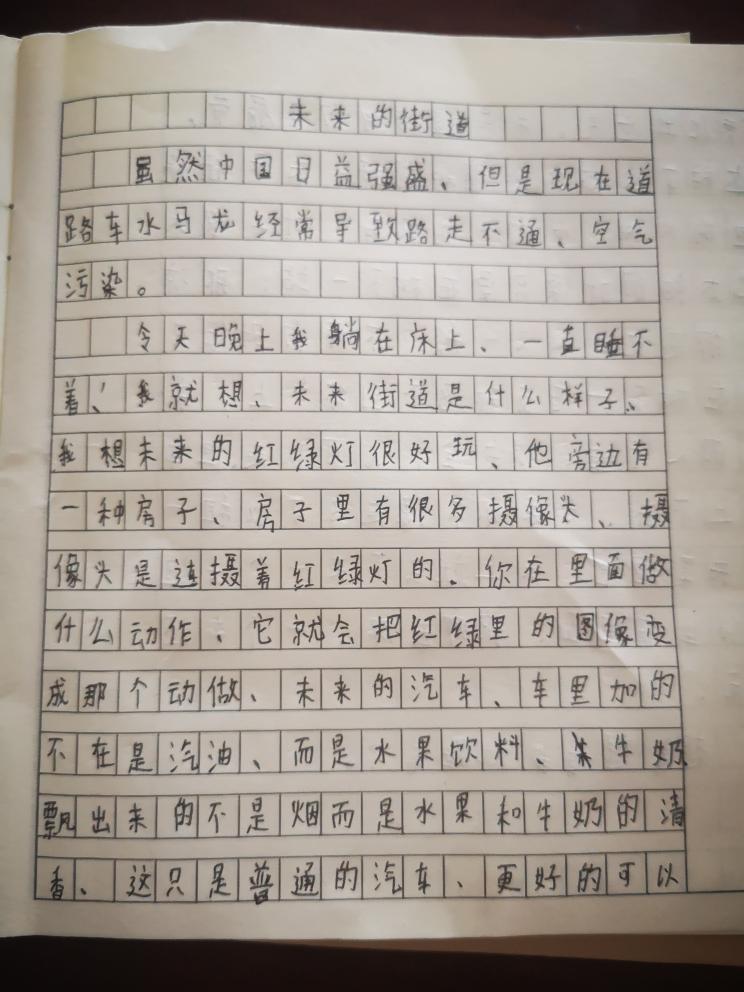 未来的街道
虽然中国日益强盛、但是现在道
路车水马龙经常导致路走不通、空气
污染。
令天晚上我躺在床上、一直睡不
着、我就想、未来街道是什么样子、
我想未来的红绿灯很好玩、他旁边有
一种房子、房子里有很多摄像头、摄
像头是连摄着红绿灯的．你在里面做
什么动作、它就会把红绿里的图像变
成那个动做、未来的汽车、车里加的
不在是汽油、而是水果饮料、牛奶
飘出来的不是烟而是水果和牛奶的清
香、这只是普通的汽车、更好的可以